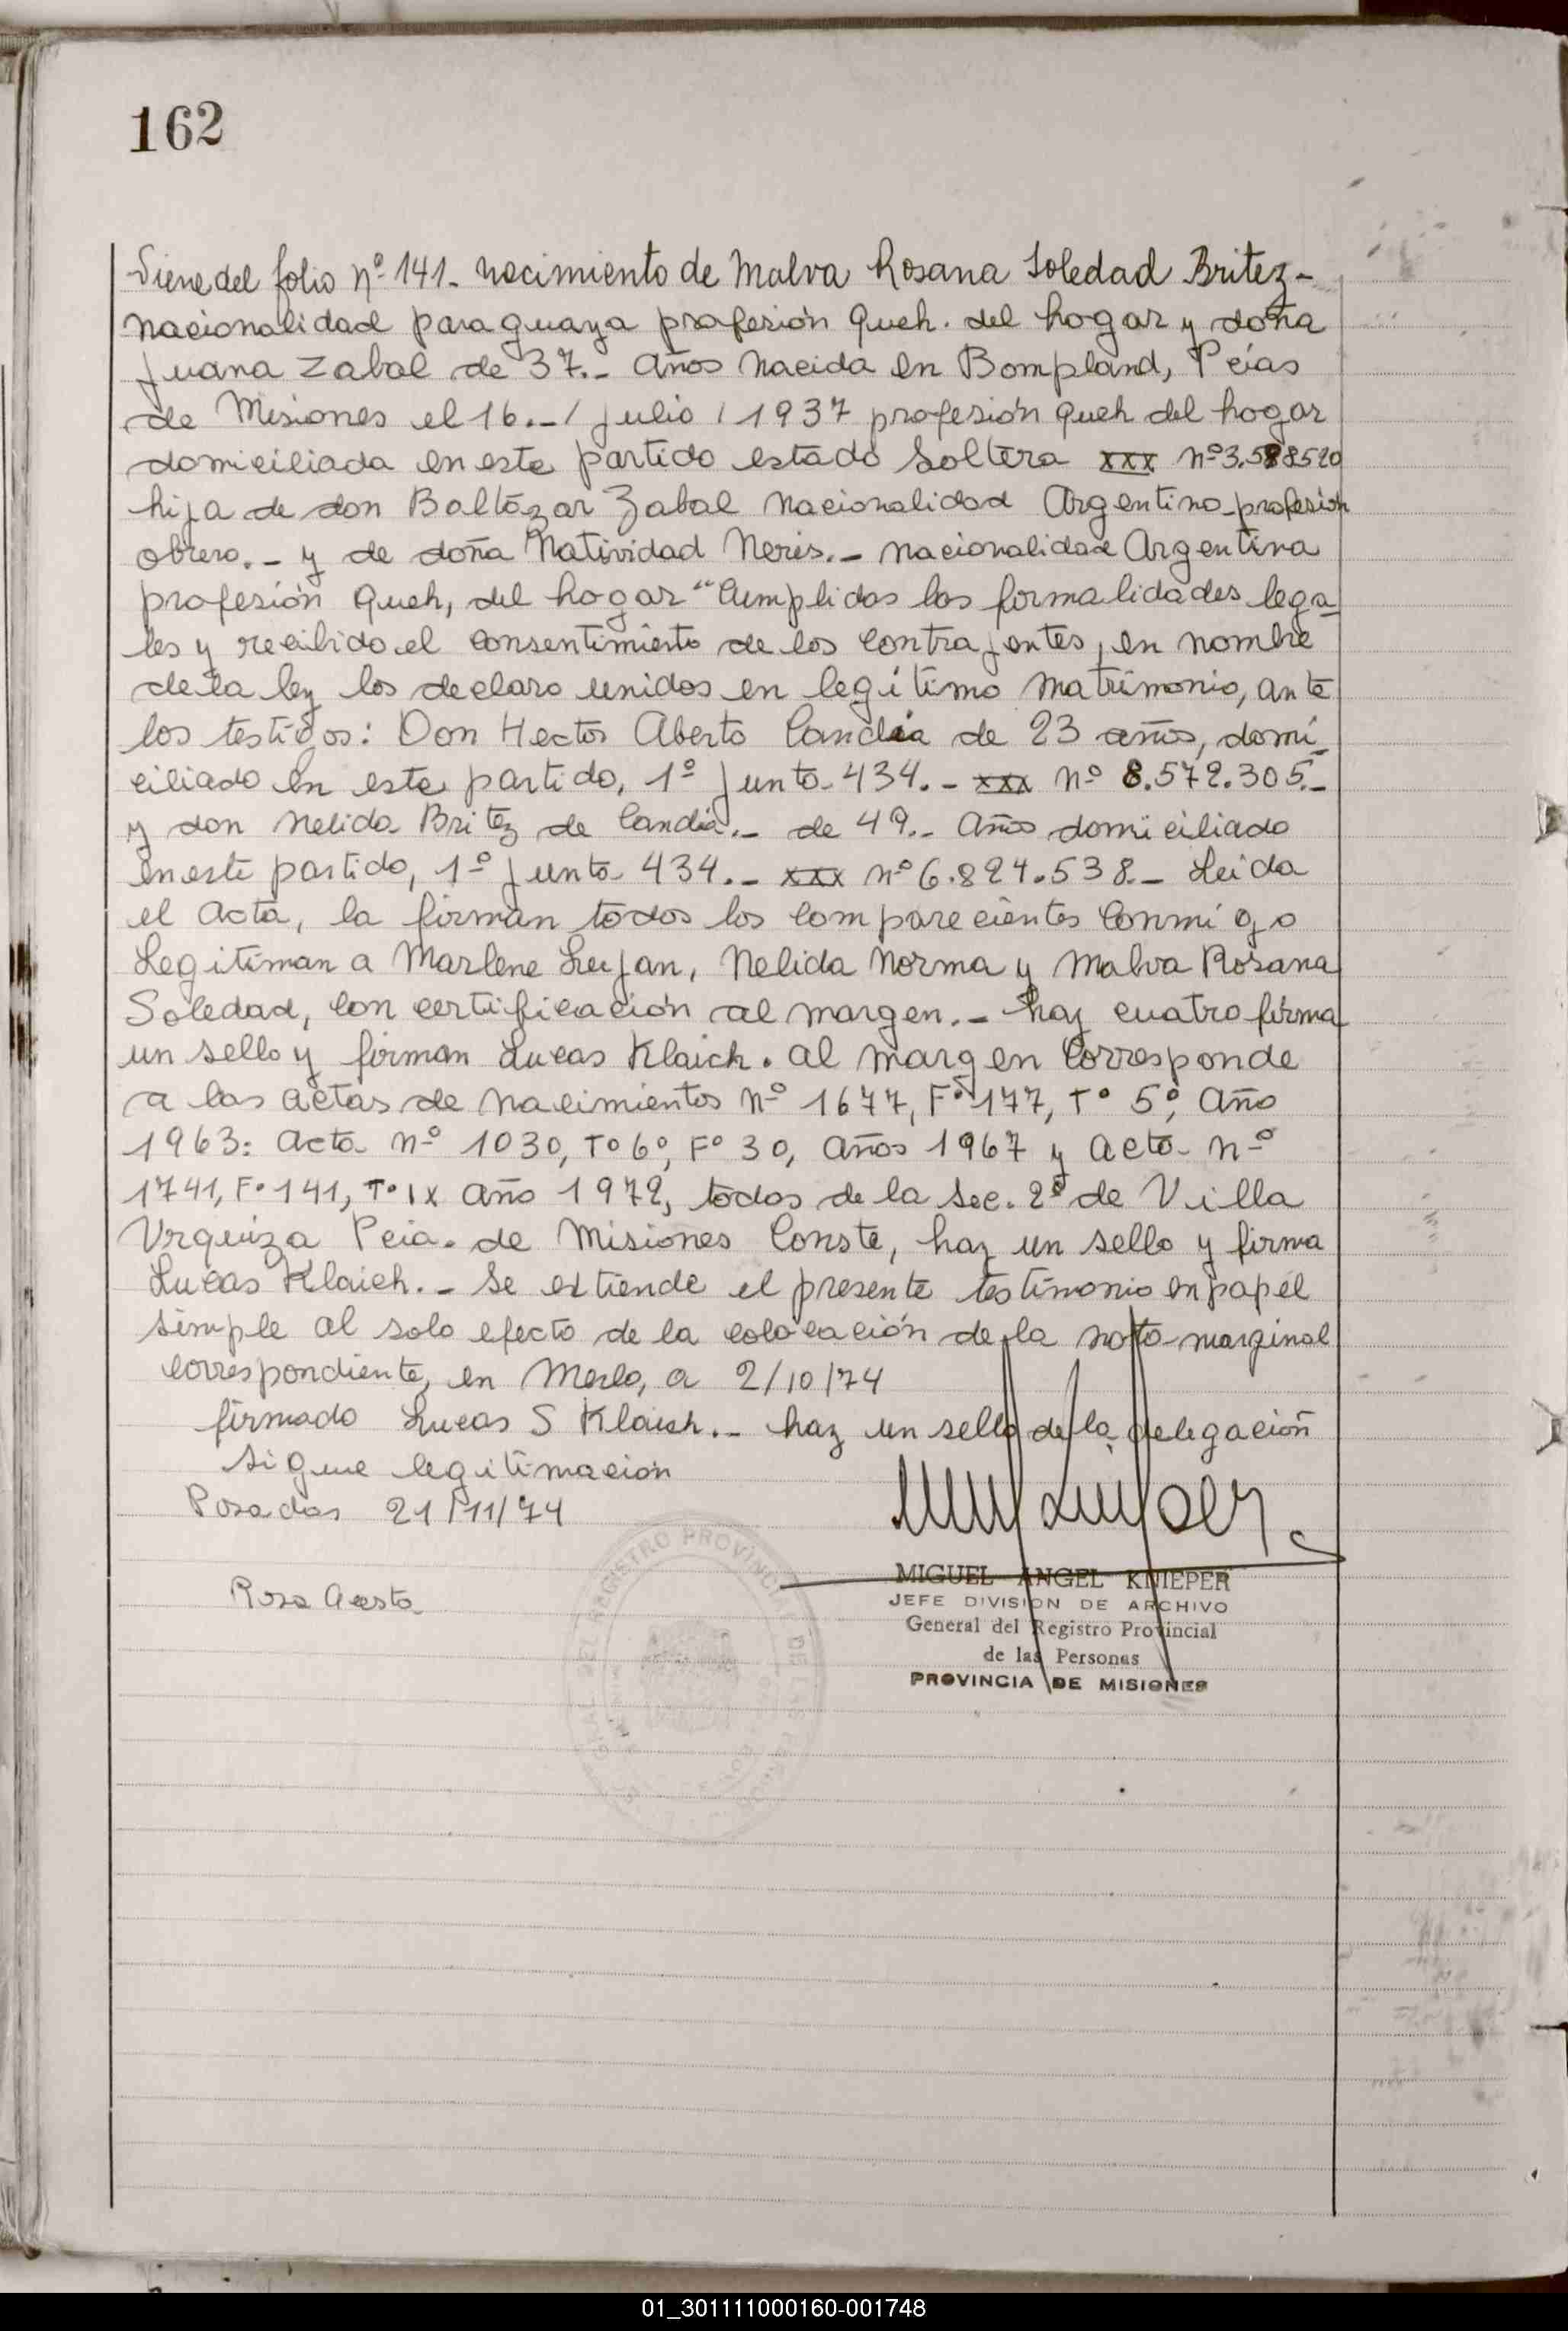 162
Viene del folio nº 141. nacimiento de Malva Rosana Soledad Britez -
nacionalidad paraguaya profesión Queh. del hogar y doña
Juana Zabal de 37.- años nacida en Bompland, Pcias
de Misiones el 16.-/ julio / 1937 profesión queh del hogar
domiciliada en este partido estado soltera xxx nº 3.588520
hija de don Baltázar Zabal nacionalidad Argentino profesión
obrero.- y de doña Natividad Neris.- nacionalidad Argentina
profesión Queh, del hogar "Cumplidas las formalidades lega-
les y recibido el consentimiento de los contrajentes, en nombre
de la ley los declaro unidos en legítimo matrimonio, ante
los testigos: Don Hector Aberto Candia de 23 años, domi-
ciliado en este partido, 1º Junta 434.- xxx nº 8.572.305.-
y don Nelida Britez de Candia.- de 49.- años domiciliado
en este partido, 1º Junta 434.- xxx nº 6.824.538.- Leida
el acta, la firman todos los comparecientes conmigo
Legitiman a Marlene Lujan, Nelida Norma y Malva Rosana
Soledad, con certificación al margen.- hay cuatro firma
un sello y firman Lucas Klaich. al margen Corresponde
a las actas de nacimientos nº 1677, Fº 177, Tº 5º, año
1963: acta nº 1030, Tº 6º, Fº 30, años 1967 y acta nº
1741, Fº 141, Tº IX año 1972, todos de la Sec. 2º de Villa
Urquiza Pcia. de Misiones Conste, hay un sello y firma
Lucas Klaich.- Se extiende el presente testimonio en papel
simple al solo efecto de la colocación de la nota marginal
correspondiente, en Merlo, a 2/10/74
firmado Lucas S Klaich.- hay un sello de la delegación
sigue legitimación
Posadas 21/11/74
Rosa Acosta
MIGUEL ANGEL KNIEPER
JEFE DIVISION DE ARCHIVO
General del Registro Provincial
de las Personas
PROVINCIA DE MISIONES
01_301111000160-001748